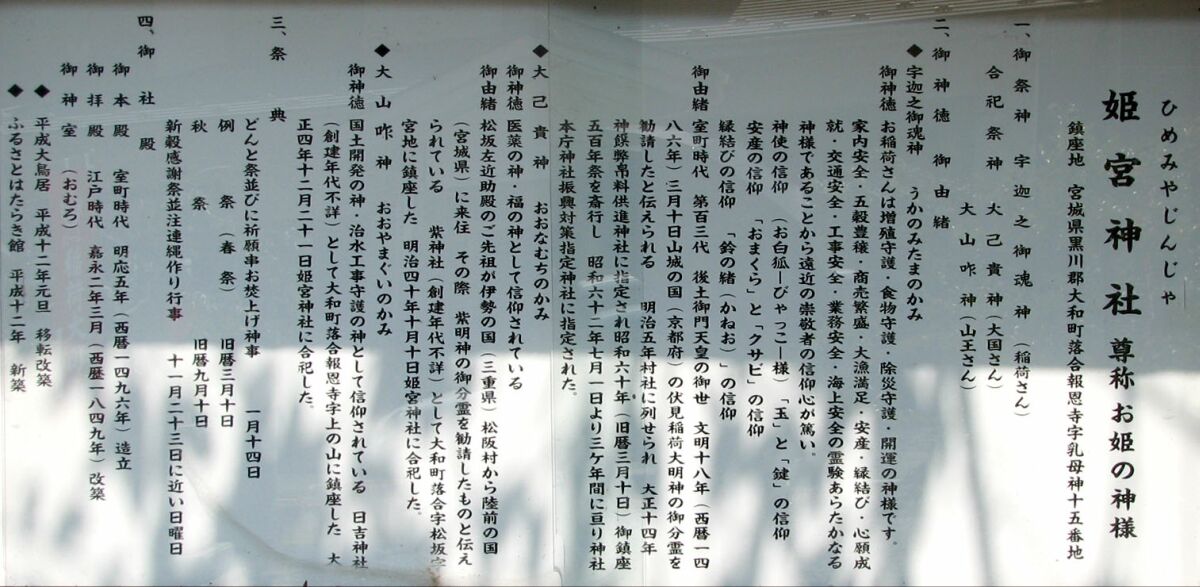 ひめみやじんじゃ
姫宮神社 尊称お姫の神様
鎮座地 宮城県黒川郡大和町落合報恩寺字乳母神十五番地
一、御祭神 宇迦之御魂神 (稲荷さん)
合祀祭神 大己貴神(大国さん)
大山咋神(山王さん)
二、御神徳 御由緒
◆宇迦之御魂神 うかのみたまのかみ
御神徳 お稲荷さんは増殖守護・食物守護・除災守護・開運の神様です。
家内安全・五穀豊穣・商売繁盛・大漁満足・安産・縁結び・心願成
就・交通安全・工事安全・業務安全・海上安全の霊験あらたかなる
神様であることから遠近の崇敬者の信仰心が篤い。
神使の信仰 (お白狐ーびゃっこー様) 「玉」と「鍵」の信仰
安産の信仰 「おまくら」と「クサビ」の信仰
縁結びの信仰 「鈴の緒(かねお)」の信仰
御由緒 室町時代 第百三代 後土御門天皇の御世 文明十八年(西暦一四
八六年)三月十日山城の国(京都府)の伏見稲荷大明神の御分霊を
勧請したと伝えられる 明治五年村社に列せられ 大正十四年
神饌幣帛料供進神社に指定され昭和六十年(旧暦三月十日)御鎮座
五百年祭を斎行し 昭和六十二年七月一日より三ケ年間に亘り神社
本庁神社振興対策指定神社に指定された。
◆大己貴神 おおなむちのかみ
御神徳 医薬の神・福の神として信仰されている
御由緒 松坂左近助殿のご先祖が伊勢の国(三重県)松阪村から陸前の国
(宮城県)に来住 その際 紫明神の御分霊を勧請したものと伝え
られている 紫神社(創建年代不詳)として大和町落合字松坂字
宮地に鎮座した 明治四十年十月十日姫宮神社に合祀した。
◆大山咋神 おおやまぐいのかみ
御神徳 国土開発の神・治水工事守護の神として信仰されている 日吉神社
(創建年代不詳)として大和町落合報恩寺字上の山に鎮座した 大
正四年十二月二十一日姫宮神社に合祀した。
三、祭典
どんと祭並びに祈願串お焚上げ神事 一月十四日
例祭(春祭) 旧暦三月十日
秋祭 旧暦九月十日
新穀感謝祭並注連縄作り行事 十一月二十三日に近い日曜日
四、御社殿
御本殿 室町時代 明応五年(西暦一四九六年)造立
御拝殿 江戸時代 嘉永二年三月(西暦一八四九年)改築
御神室(おむろ)
◆平成大鳥居 平成十二年元旦 移転改築
◆ふるさとはたらき館 平成十二年 新築